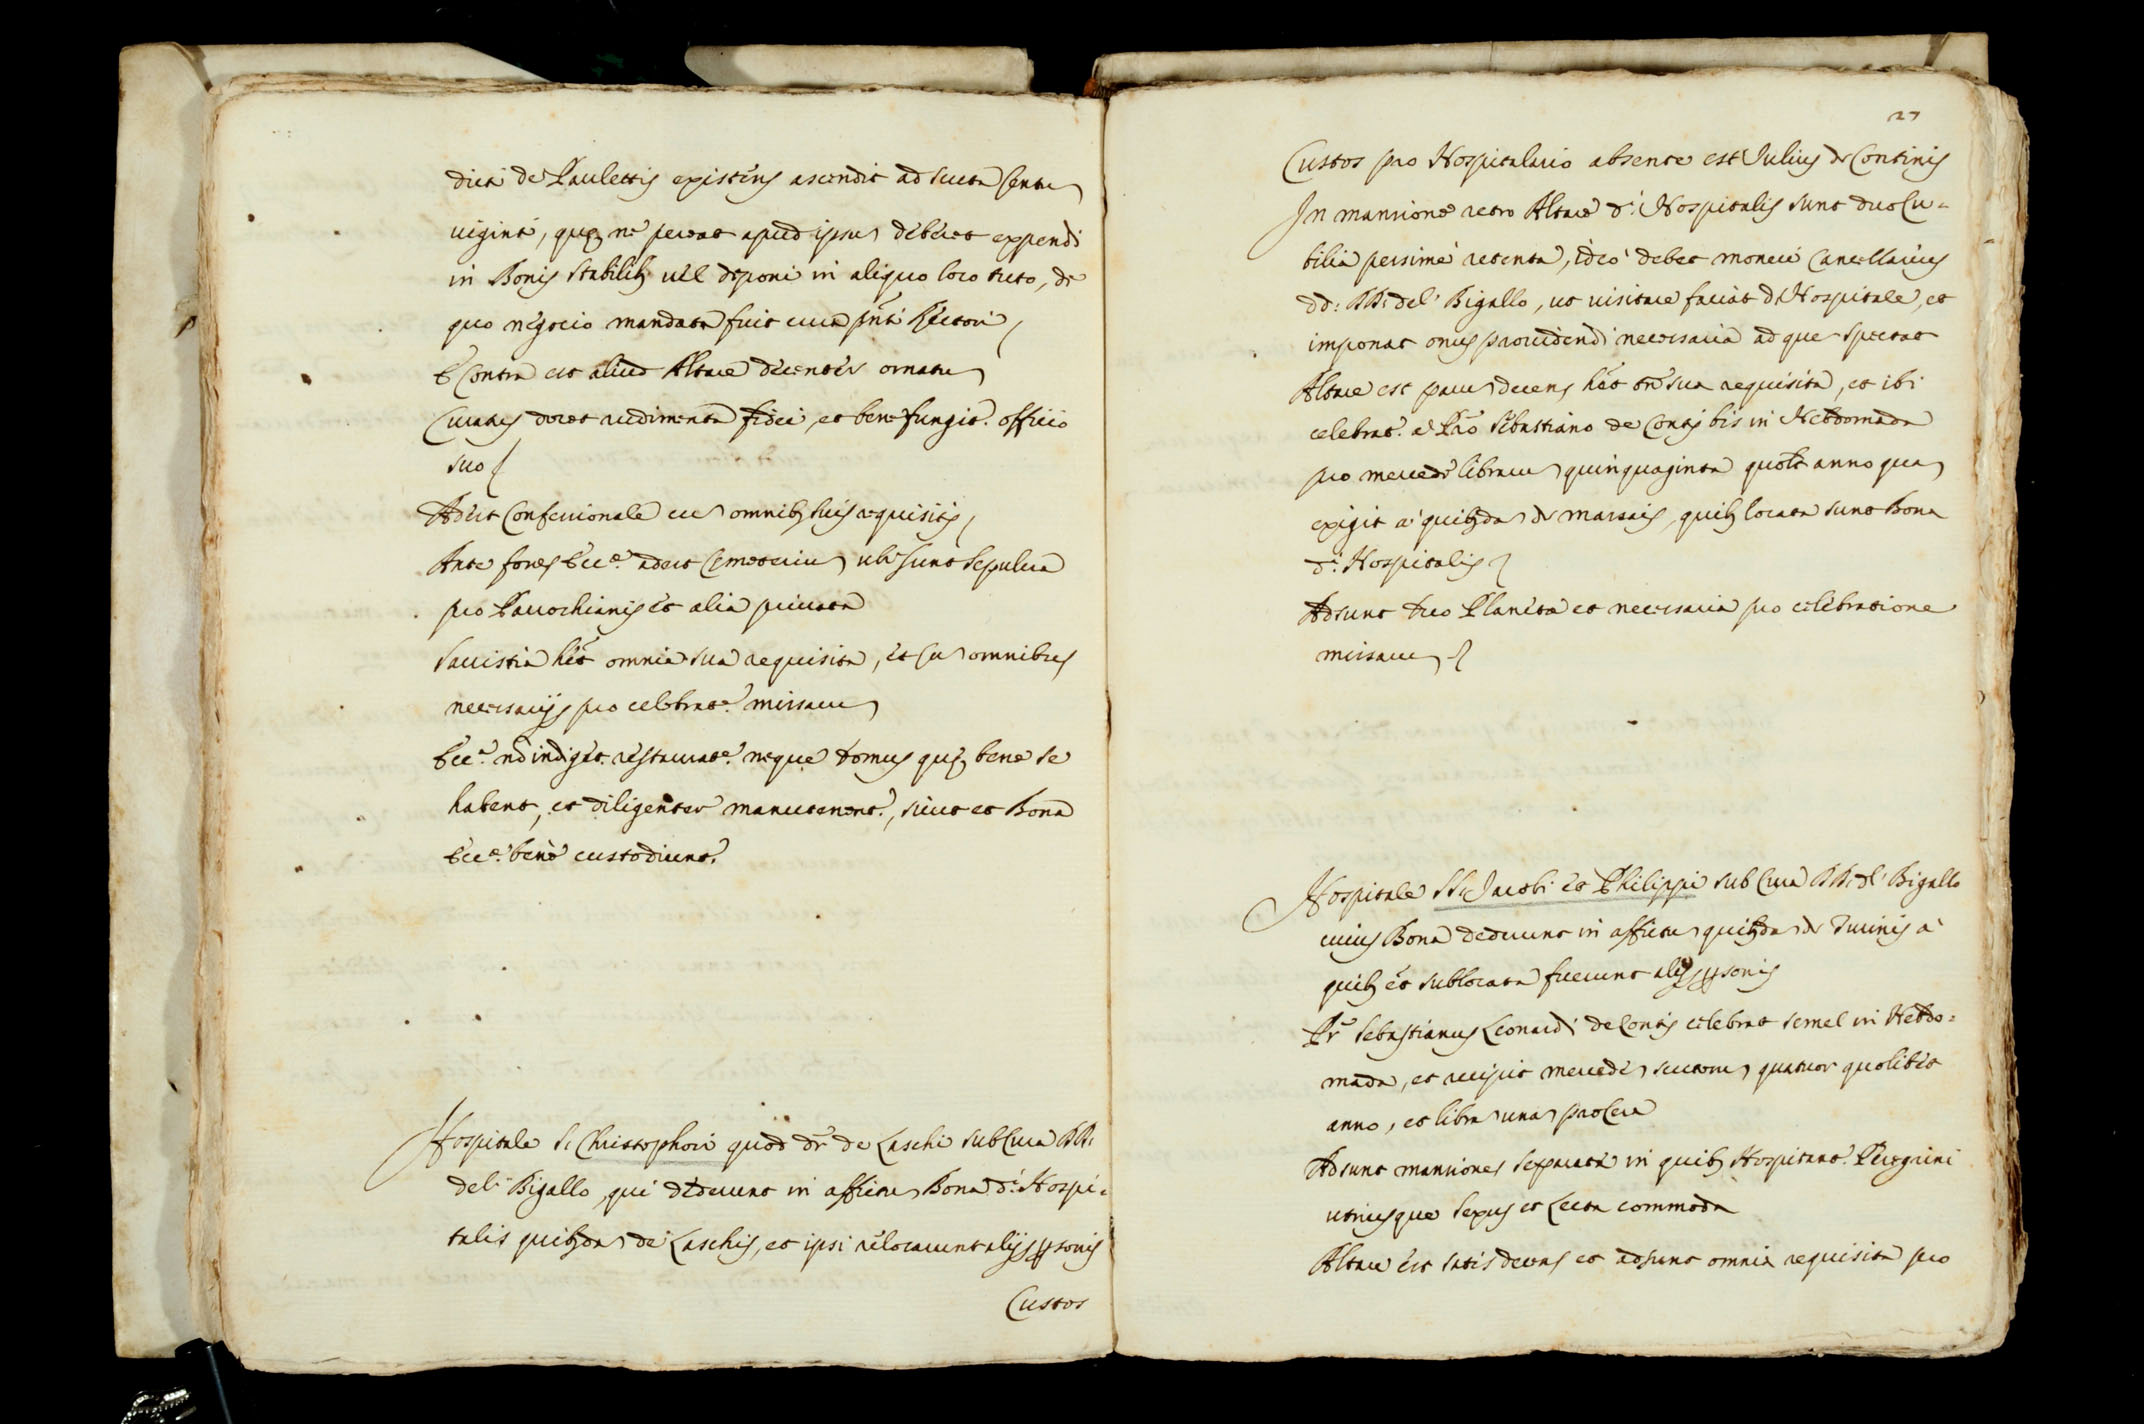 dicti de Paulettis existens ascendit ad scuta centu
viginti, quę ne pereat apud ipsu deberet expendi
in Bonis stabilibꝫ vel deponi in aliquo loco tuto, de
quo negocio mandata fuit cura pñti Rectori
E Contra est aliud Altare decenter ornatu
Curatus docet rudimenta fidei, et bene fungit. officio
suo
Adest Confessionale cu omnibꝫ suis requisitis
Ante fores Ecc.ᵉ adest Cemeteriu ubi sunt sepulcra
pro Parrochianis et alia privata
Sacristia hẽt omnia sua requisita, et cu omnibus
necessarijs pro celebrat.ᵉ missaru
Ecc.ᵃ nõ indiget restaurat.ᵉ neque domus quę bene se
habent, et diligenter manutenent., sicut et Bona
Ecc.ᵉ bene custodiunt.
Hospitale S. Christophori quod dr̃ de Laschi sub Cura RR:
del Bigallo, qui dederunt in affictu Bona d.ⁱ Hospi=
talis quibꝫdã de Laschis, et ipsi relocarunt alijs ꝑsonis
Custos
27
Custos pro Hospitalario absente est Julius de Continis
In mansione retro Altare d.ⁱ Hospitalis sunt duo Cu=
bilia pessime retenta, ideo debet moneri Cancellarius
dd: RR: del Bigallo, ut visitare faciat d. Hospitale, et
imponat onus providendi necessaria ad que spectat
Altare est paru decens hẽt oĩa sua requisita, et ibi
celebrat. a Pr̃o Sebastiano de Contis bis in Hebdomada
pro mercede libraru quinquaginta quolt anno qua
exigit a quibꝫda de Marsais, quibꝫ locata sunt Bona
d.ⁱ Hospitalis
Adsunt due Planeta et necessaria pro celebratione
missaru
Hospitale SS. Jacobi et Philippi sub Cura RR: del Bigallo
cuius Bona dederunt in affictu quibꝫda de Turinis a
quibꝫ et sublocata fuerunt alijs ꝑsonis
Pr̃ Sebastianus Leonardi de Contis celebrat semel in Hebdo=
mada, et recipit mercede scutoru quatuor quolibet
anno, et libra una pro Cera
Adsunt mansiones separate in quibꝫ Hospitant. Peregrini
utriusque sexus et Lecta commoda
Altare est satis decens et adsunt omnia requisita pro